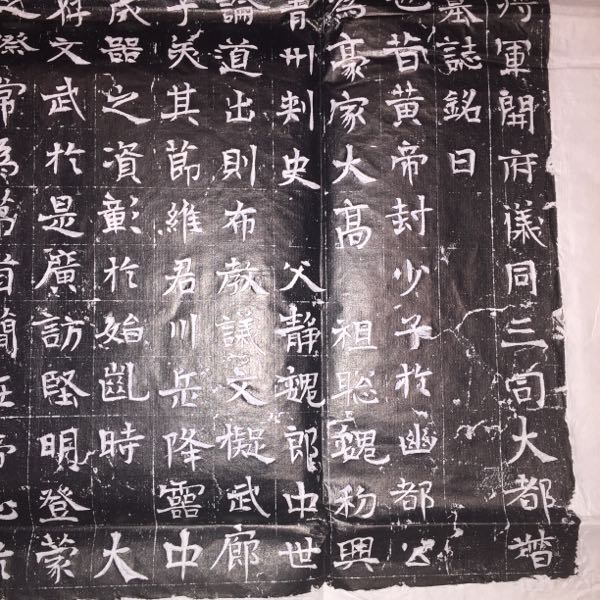 軍開府儀同三司大都督
墓誌銘曰
昔黄帝封少子於幽都公
為豪家大高 祖聡魏初興
青州刺史 父静魏郎中世
論道出則布教議文擬武廊
矣其節維君川岳降靈中
成器之資彰於始齓時 大
存文武於是廣訪堅明登蒙
常為萬首簡在帝心